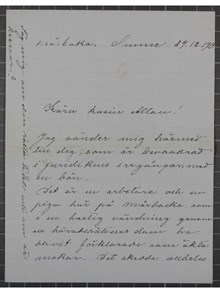 Mårbacka, Sunne 29.12.19
Kära kusin Allan!
Jag vänder mig härmed
till dig, som är bevandrad
i juridikens irrgångar, med
en bön.
Det är en arbetare och en
piga här på Mårbacka som
i en hastig vändning genom
en häradsrättens dom ha
blivit förklarade som äkta
makar. Det skedde alldeles